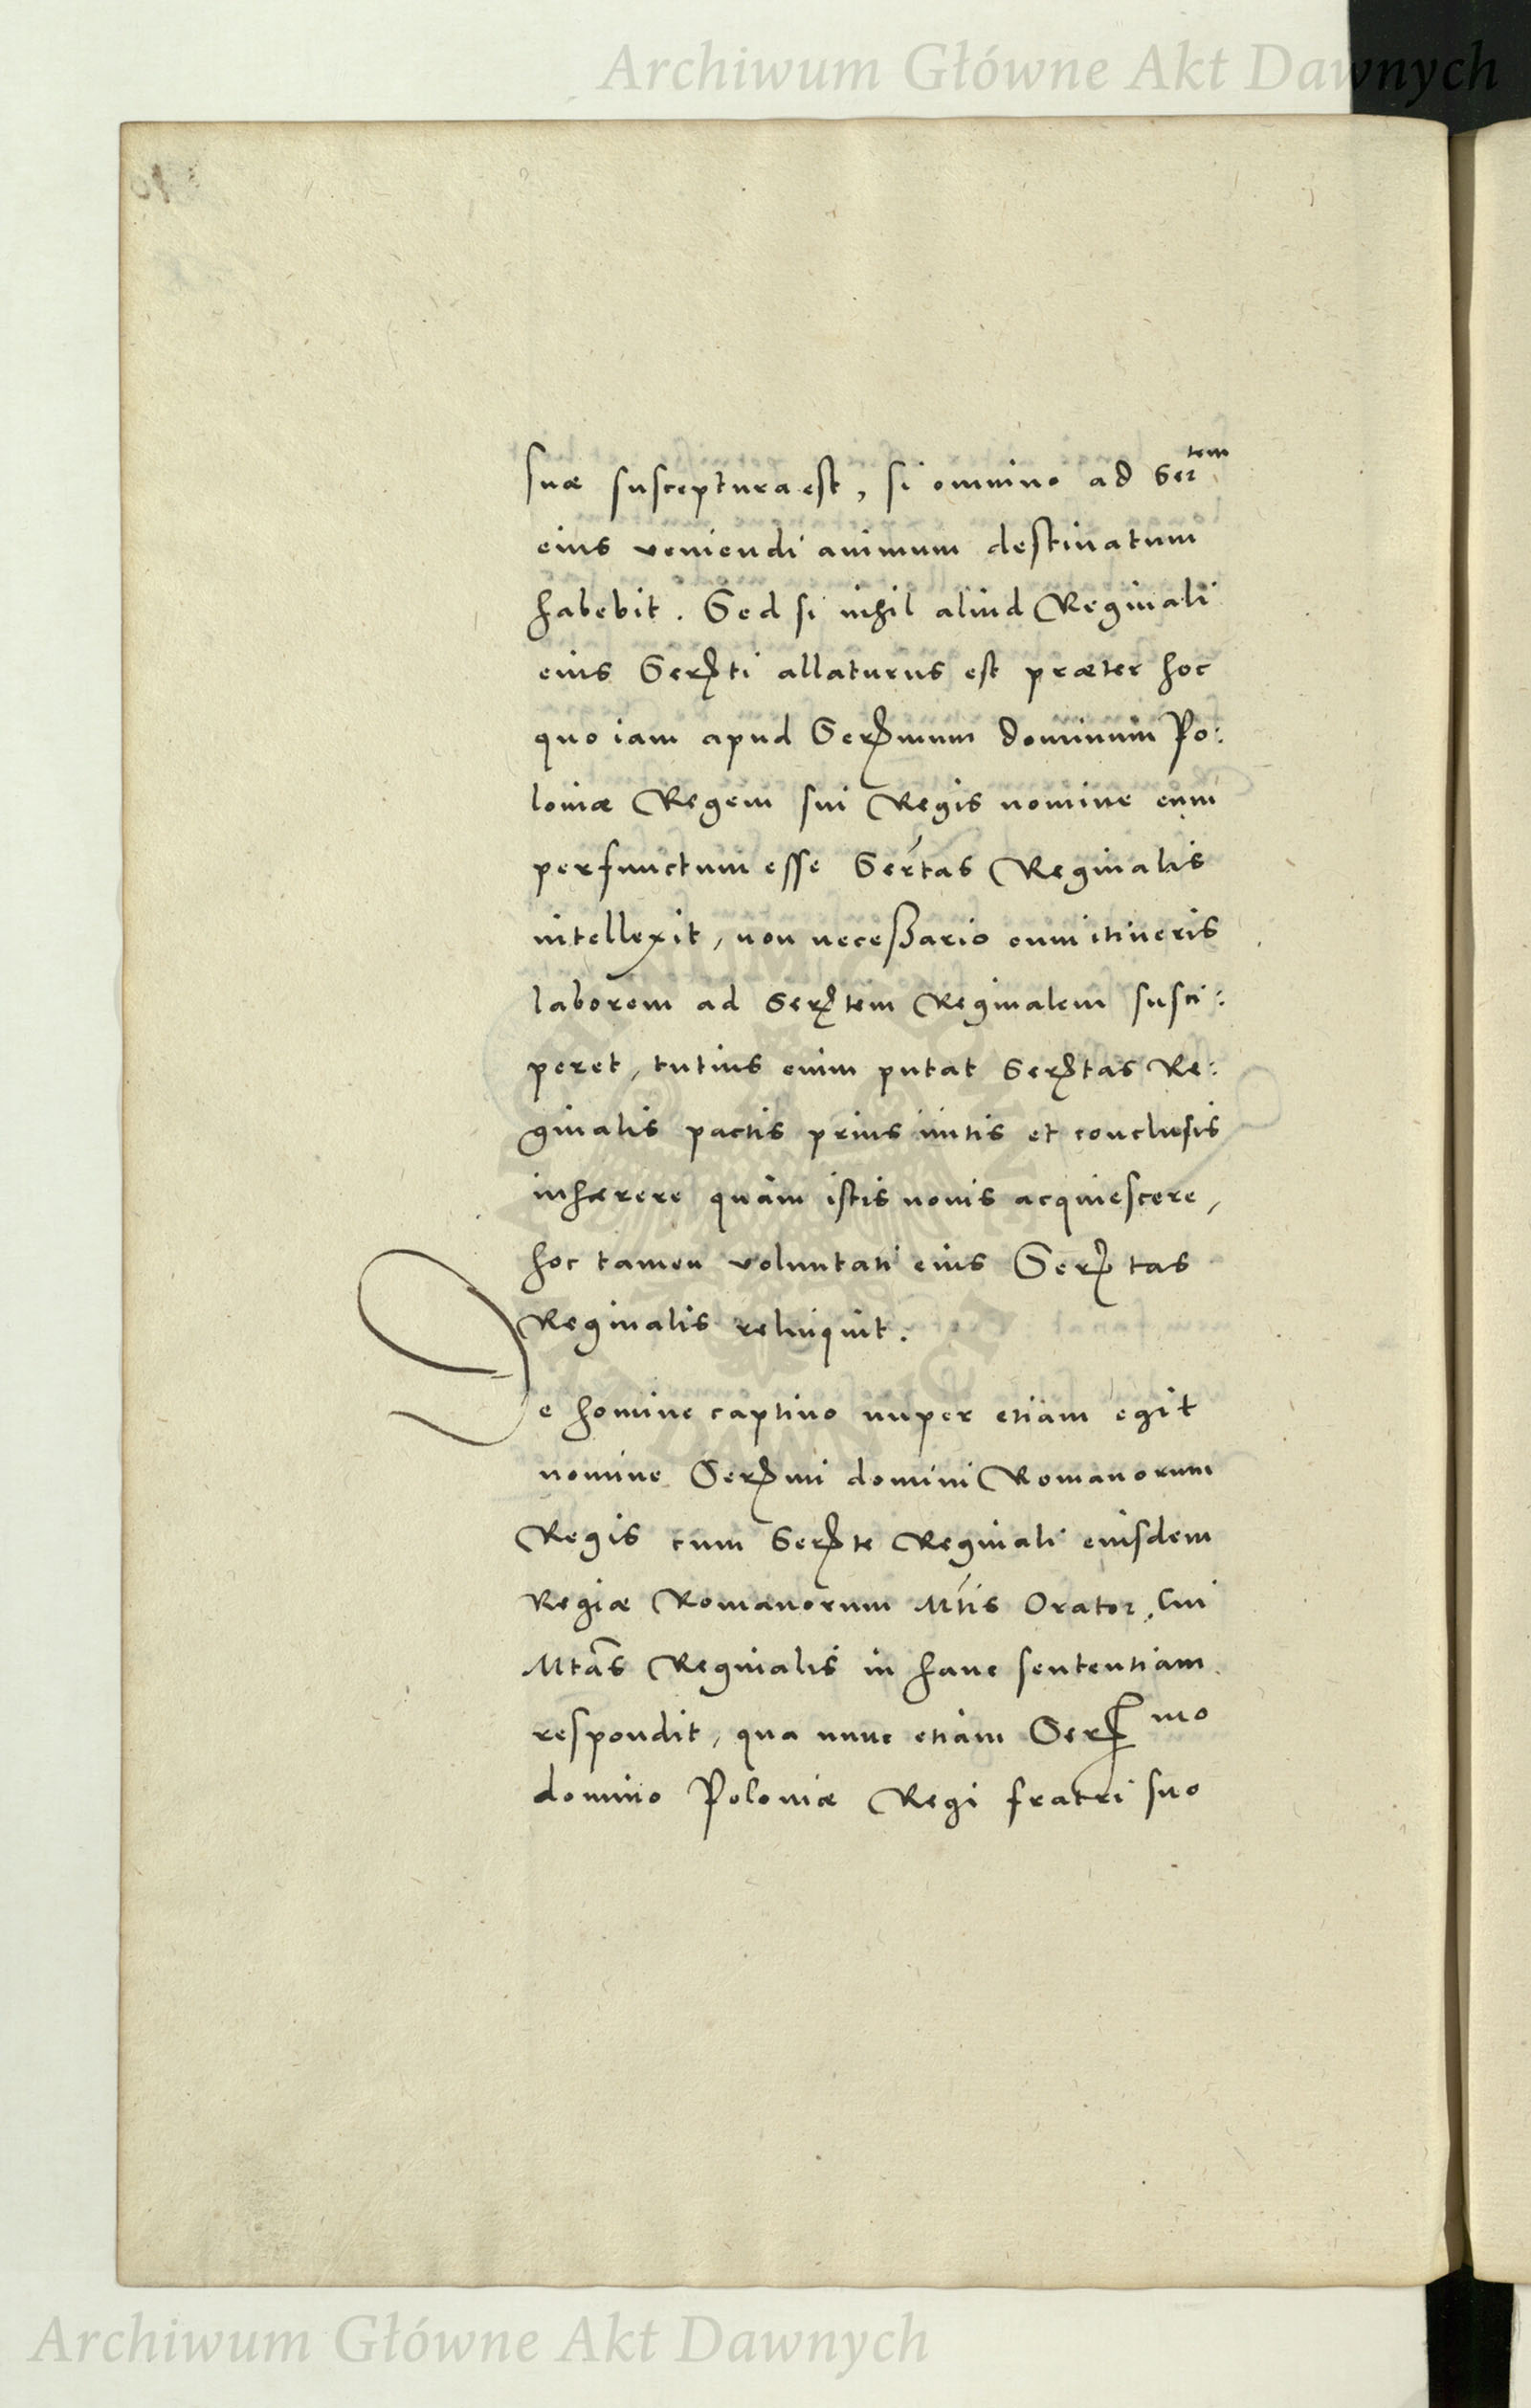 Archiwum Główne Akt Dawnych
suæ susceptura est, si omnino ad Ser^tem
eius veniendi animum destinatum
habebit. Sed si nihil aliud Reginali
eius Serti allaturus est præter hoc
quo iam apud Sermum dominum Po:
loniæ Regem sui Regis nomine eum
perfunctum esse Sertas Reginalis
intellexit, non neceßario eum itineris
laborem ad Sertem Reginalem susci:
peret, tutius enim putat Sertas Re:
ginalis pactis prius initis et conclusis
inhærere quàm istis nouis acquiescere,
hoc tamen voluntati eius Sertas
Reginalis relinquit.
De homine captiuo nuper etiam egit
nomine Sermi domini Romanorum
Regis cum Serte Reginali eiusdem
Regiæ Romanorum Mtis Orator, Cui
Mtas Reginalis in hanc sententiam
respondit, qua nunc etiam Ser^mo
domino Poloniæ Regi fratri suo
Archiwum Główne Akt Dawnych